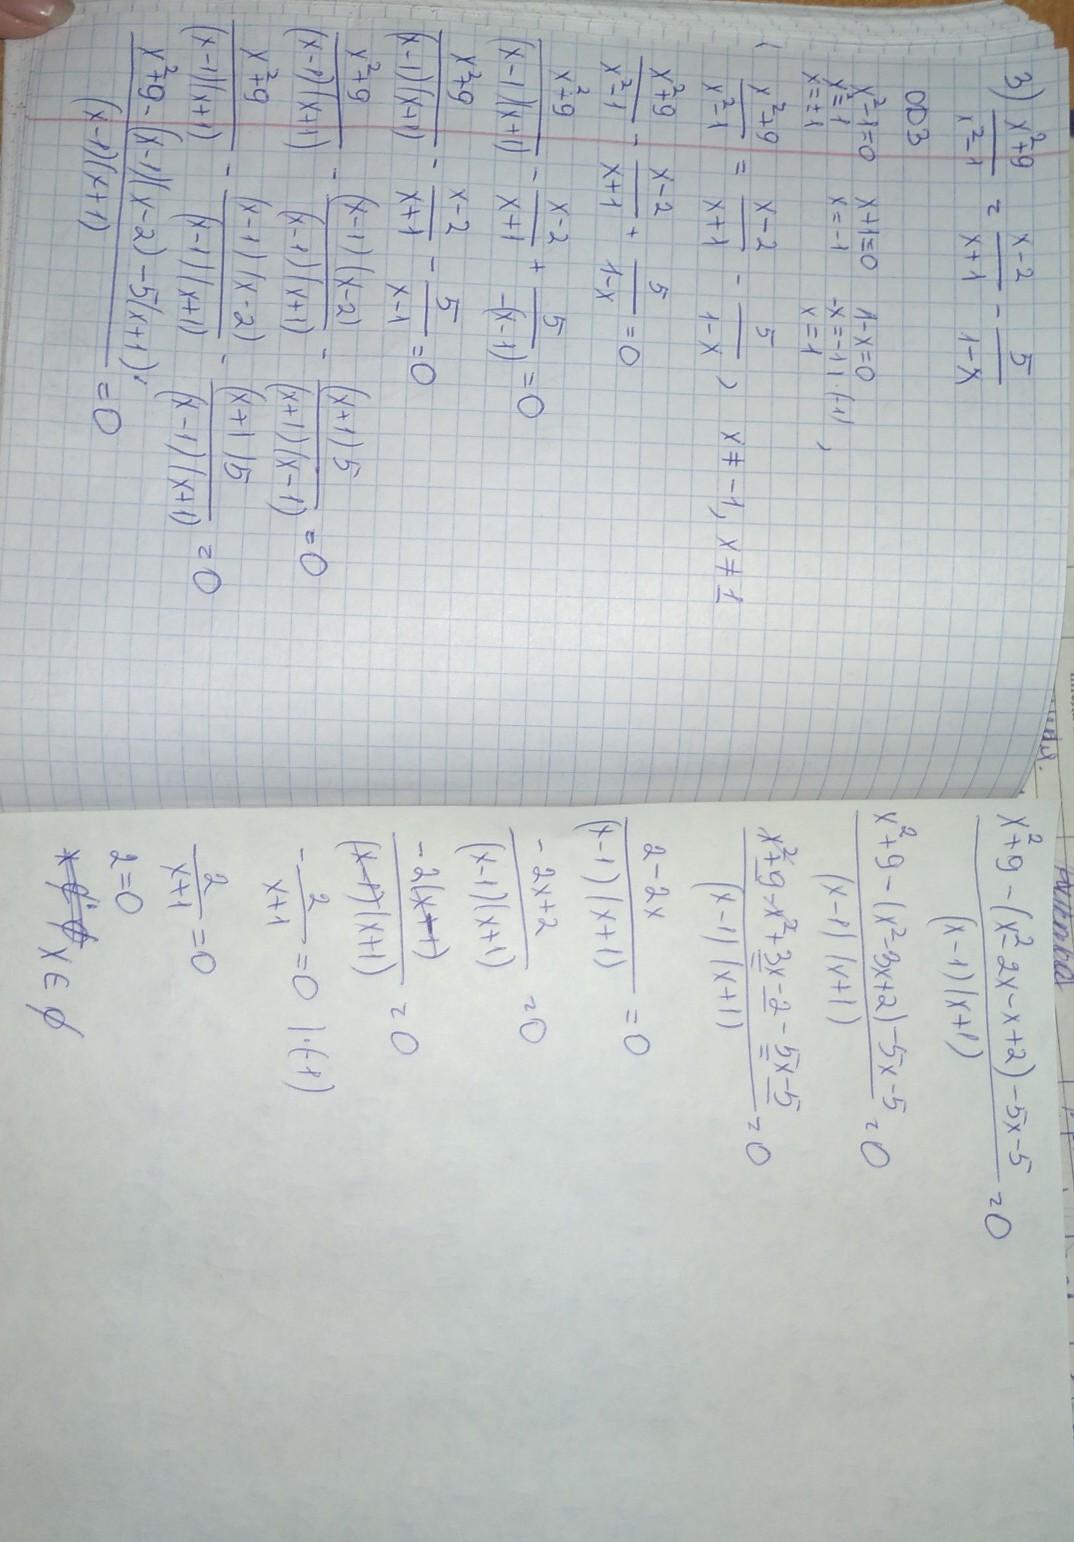 3) (x²+9)/(x²-1) = (x-2)/(x+1) - 5/(1-x)
ОДЗ
x²-1=0 x+1=0 1-x=0
x²=1 x=-1 -x=-1 |·(-1),
x=±1 x=1
(x²+9)/(x²-1) = (x-2)/(x+1) - 5/(1-x), x≠-1, x≠1
(x²+9)/(x²-1) - (x-2)/(x+1) + 5/(1-x) =0
(x²+9)/((x-1)(x+1)) - (x-2)/(x+1) + 5/(-(x-1)) =0
(x²+9)/((x-1)(x+1)) - (x-2)/(x+1) - 5/(x-1) =0
(x²+9)/((x-1)(x+1)) - ((x-1)(x-2))/((x-1)(x+1)) - ((x+1)5)/((x+1)(x-1)) =0
(x²+9)/((x-1)(x+1)) - ((x-1)(x-2))/((x-1)(x+1)) - ((x+1)5)/((x-1)(x+1)) =0
(x²+9-(x-1)(x-2)-5(x+1))/((x-1)(x+1)) =0
(x²+9-(x²-2x-x+2)-5x-5)/((x-1)(x+1)) =0
(x²+9-(x²-3x+2)-5x-5)/((x-1)(x+1)) =0
(x²+9-x²+3x-2-5x-5)/((x-1)(x+1)) =0
(2-2x)/((x-1)(x+1)) =0
(-2x+2)/((x-1)(x+1)) =0
(-2(x-1))/((x-1)(x+1)) =0
-2/(x+1) =0 |·(-1)
2/(x+1) =0
2=0
x∈ø